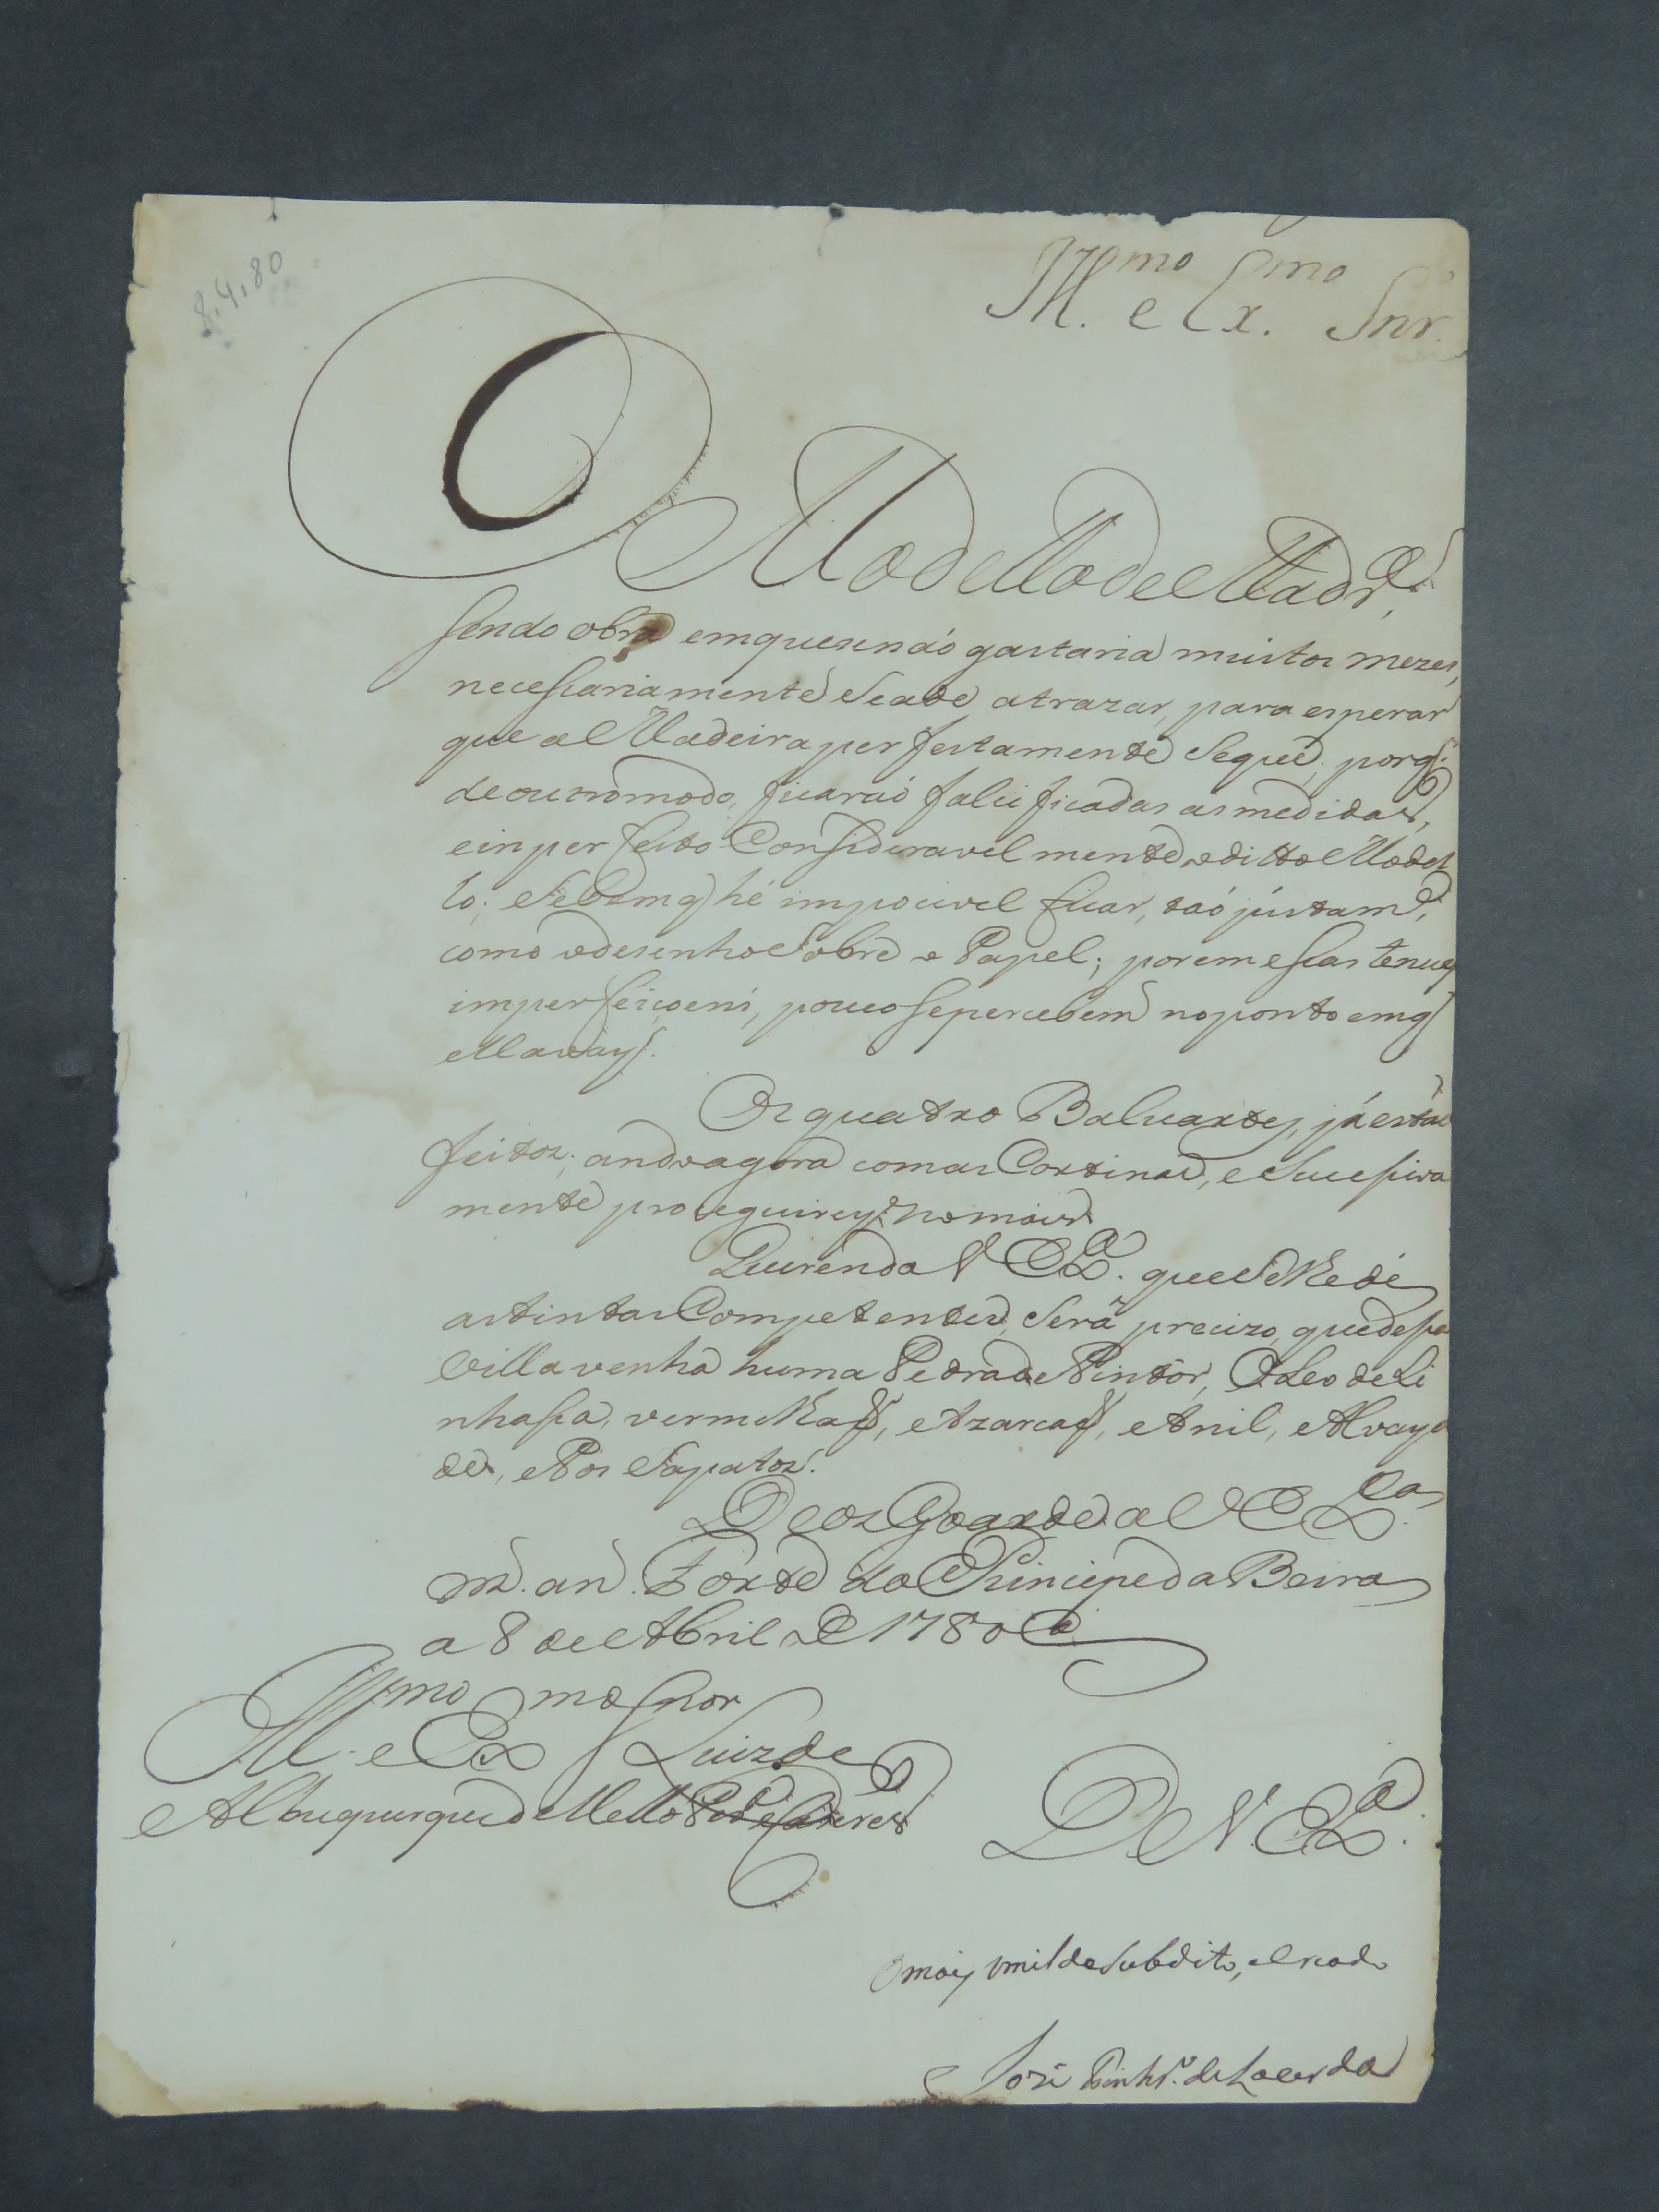 8.4.80
Ill.mo e Ex.mo Snr.
O Modello de Madr.a,
sendo obra em que se naó gastaria muitos mezes,
necessariamente Se ade atrazar, para esperar
que a Madeira perfeitamente Seque, porq.
de outro modo, ficaraó falcificadas as medidas,
e inperfeito Consideravel mente o ditto Model
lo; e Se bem q hé impocivel ficar, taó jústam.e,
como o desenho Sobre o Papel; porem essas tenues
imperfeiçoens, pouco se percebem no ponto em q
ellas vay.
Os quatro Baluartes, já estaó
feitos; ando agora com as Cortinas, e Sucessiva
mente proseguirey no mais.
Querendo V. Ex.a que Se lhe dé
as tintas Competentes, Será precizo, que dessa
Villa venha huma Pedra de Pintor, Oleo de Li
nhassa, vermelhaó, Azarcaó, Anil, Alvaya
de, e Pos Sapatos.
Deos Goarde a V. Ex.a
m. an. Forte do Principe da Beira
a 8 de Abril de 1780
Ill.mo e Ex.mo Snor Luiz de
Albuquerque de Mello Per.a e Caceres
De V. Ex.a
O mais umilde Subdito, e criado
José Pinhr.o de Lacerda